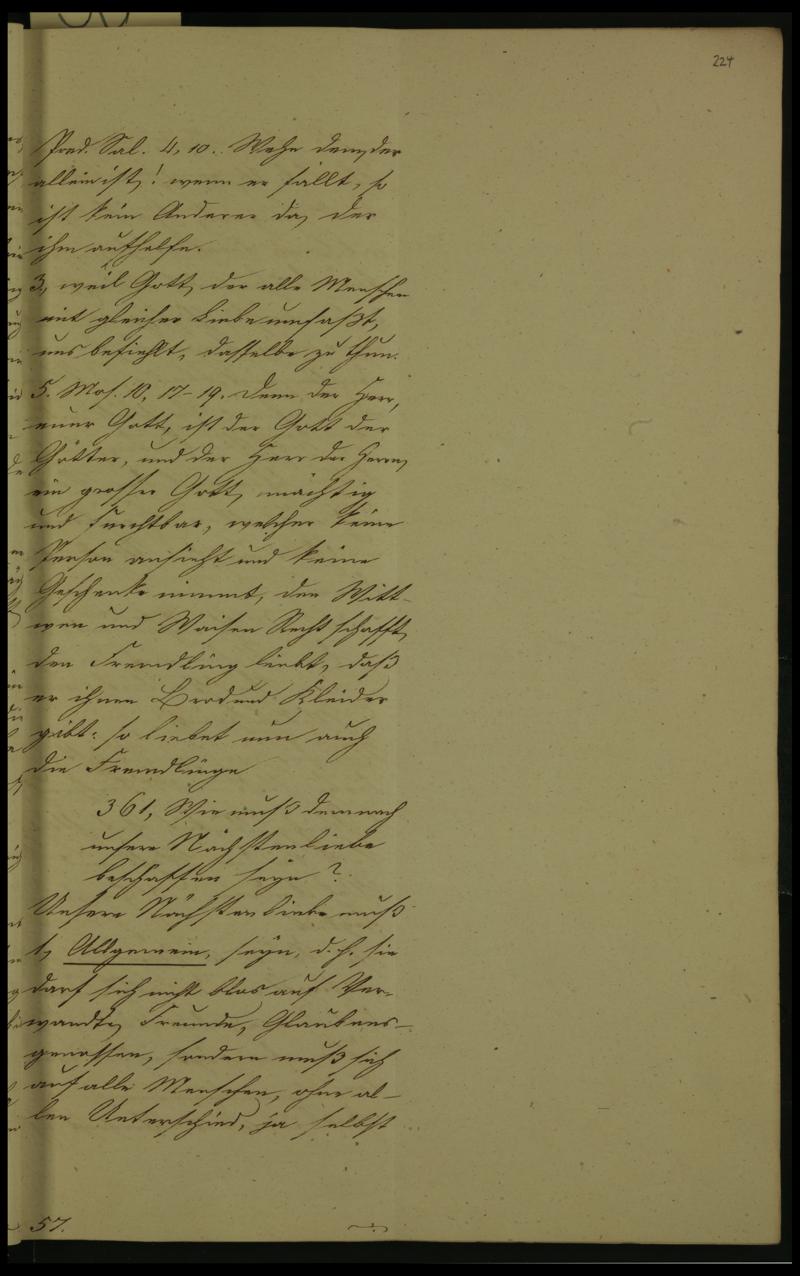 224
Pred. Sal. 4, 10. Wehe dem, der
allein ist! wenn er fällt, so
ist kein Anderer da, der
ihm aufhelfe.
3, weil Gott, der alle Menschen
mit gleicher Liebe umfaßt,
uns befiehlt, dasselbe zu thun.
5. Mos. 10, 17-19. Denn der Herr,
euer Gott, ist der Gott der
Götter, und der Herr der Herrn,
ein grosser Gott, mächtig
und furchtbar, welcher keine
Person ansieht und keine
Geschenke nimmt, den Witt-
wen und Waisen Recht schafft,
den Fremdling liebt, daß
er ihnen Brod und Kleider
gibt: so liebet nun auch
die Fremdlinge
361, Wie muß demnach
unsere Nächstenliebe
beschaffen seyn?
Unsere Nächstenliebe muß
1, Allgemein, seyn, d. h. sie
darf sich nicht blos auf Ver-
wandte, Freunde, Glaubens-
genossen, sondern muß sich
auf alle Menschen, ohne al-
len Unterschied, ja selbst
57.